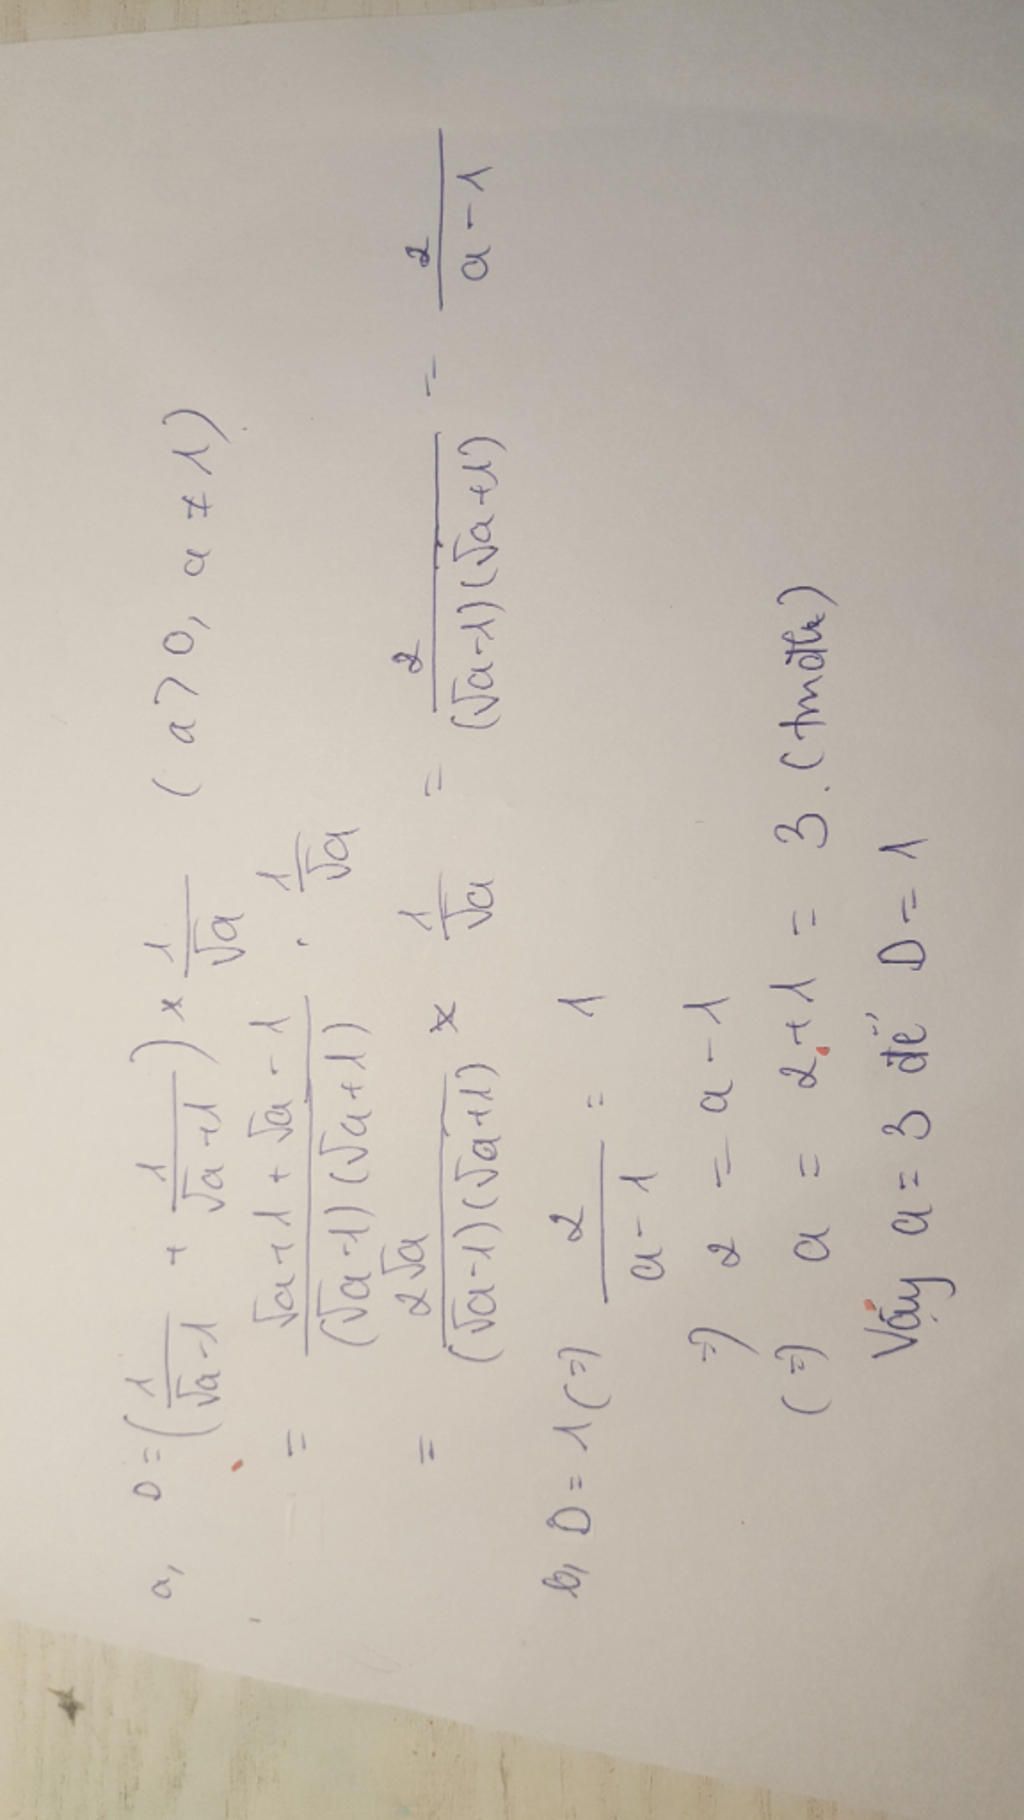 a, D = (1/(√a-1) + 1/(√a+1)) × 1/√a (a > 0, a ≠ 1)
= (√a+1+√a-1)/((√a-1)(√a+1)) . 1/√a
= 2√a/((√a-1)(√a+1)) × 1/√a = 2/((√a-1)(√a+1)) = 2/(a-1)
b, D = 1 (=) 2/(a-1) = 1
=) 2 = a-1
(=) a = 2+1 = 3. (tmđk)
Vậy a = 3 để D = 1